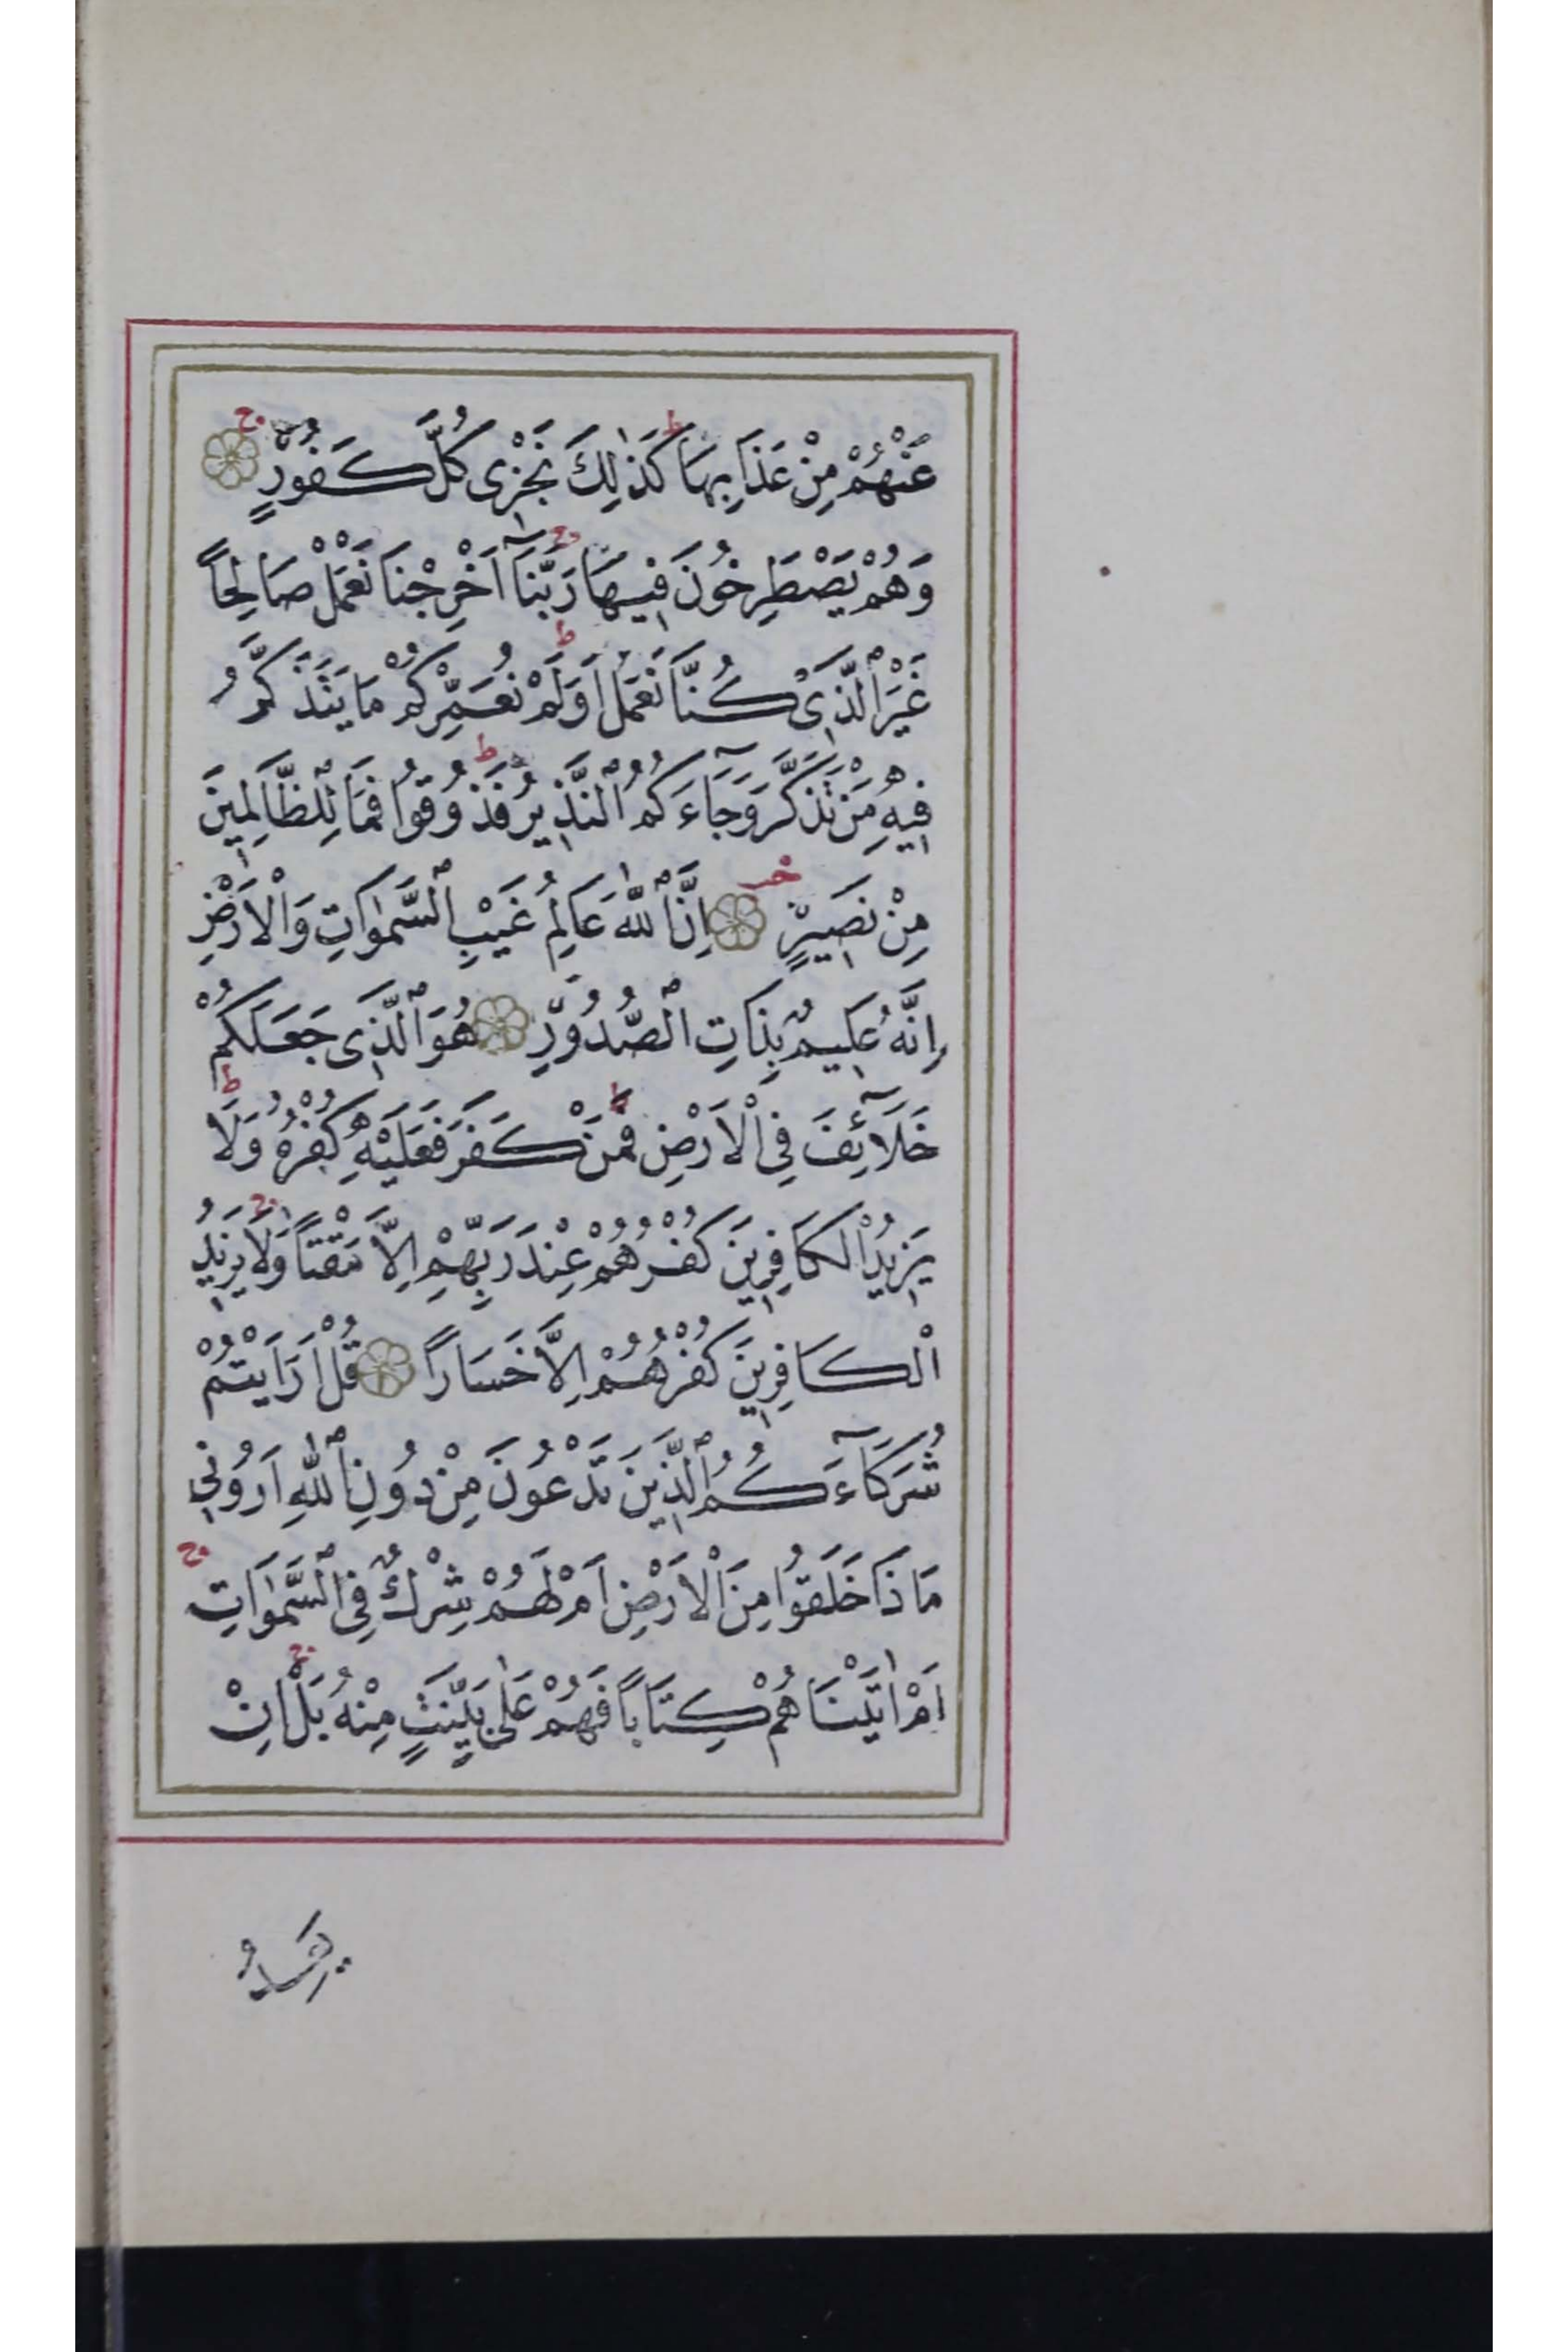 عَنْهُمْ مِنْ عَذَابِهَا ط كَذٰلِكَ نَجْزِى كُلَّ كَفُورٍ ج
وَهُمْ يَصْطَرِخُونَ فِيهَا ج رَبَّنَٓا اَخْرِجْنَا نَعْمَلْ صَالِحًا
غَيْرَ الَّذِى كُنَّا نَعْمَلُ ط اَوَلَمْ نُعَمِّرْكُمْ مَا يَتَذَكَّرُ
فِيهِ مَنْ تَذَكَّرَ وَجَٓاءَكُمُ النَّذِيرُ ط فَذُوقُوا فَمَا لِلظَّالِمِينَ
مِنْ نَصِيرٍ اِنَّ اللّٰهَ عَالِمُ غَيْبِ السَّمٰوَاتِ وَالْاَرْضِ
اِنَّهُ عَلِيمٌ بِذَاتِ الصُّدُورِ هُوَ الَّذِى جَعَلَكُمْ
خَلَٓائِفَ فِى الْاَرْضِ ط فَمَنْ كَفَرَ فَعَلَيْهِ كُفْرُهُ ط وَلَا
يَزِيدُ الْكَافِرِينَ كُفْرُهُمْ عِنْدَ رَبِّهِمْ اِلَّا مَقْتًا ج وَلَا يَزِيدُ
الْكَافِرِينَ كُفْرُهُمْ اِلَّا خَسَارًا قُلْ اَرَاَيْتُمْ
شُرَكَٓاءَكُمُ الَّذِينَ تَدْعُونَ مِنْ دُونِ اللّٰهِ اَرُونِى
مَاذَا خَلَقُوا مِنَ الْاَرْضِ اَمْ لَهُمْ شِرْكٌ فِى السَّمٰوَاتِ ج
اَمْ اٰتَيْنَاهُمْ كِتَابًا فَهُمْ عَلٰى بَيِّنَتٍ مِنْهُ ج بَلْ اِنْ
يَعِدُ